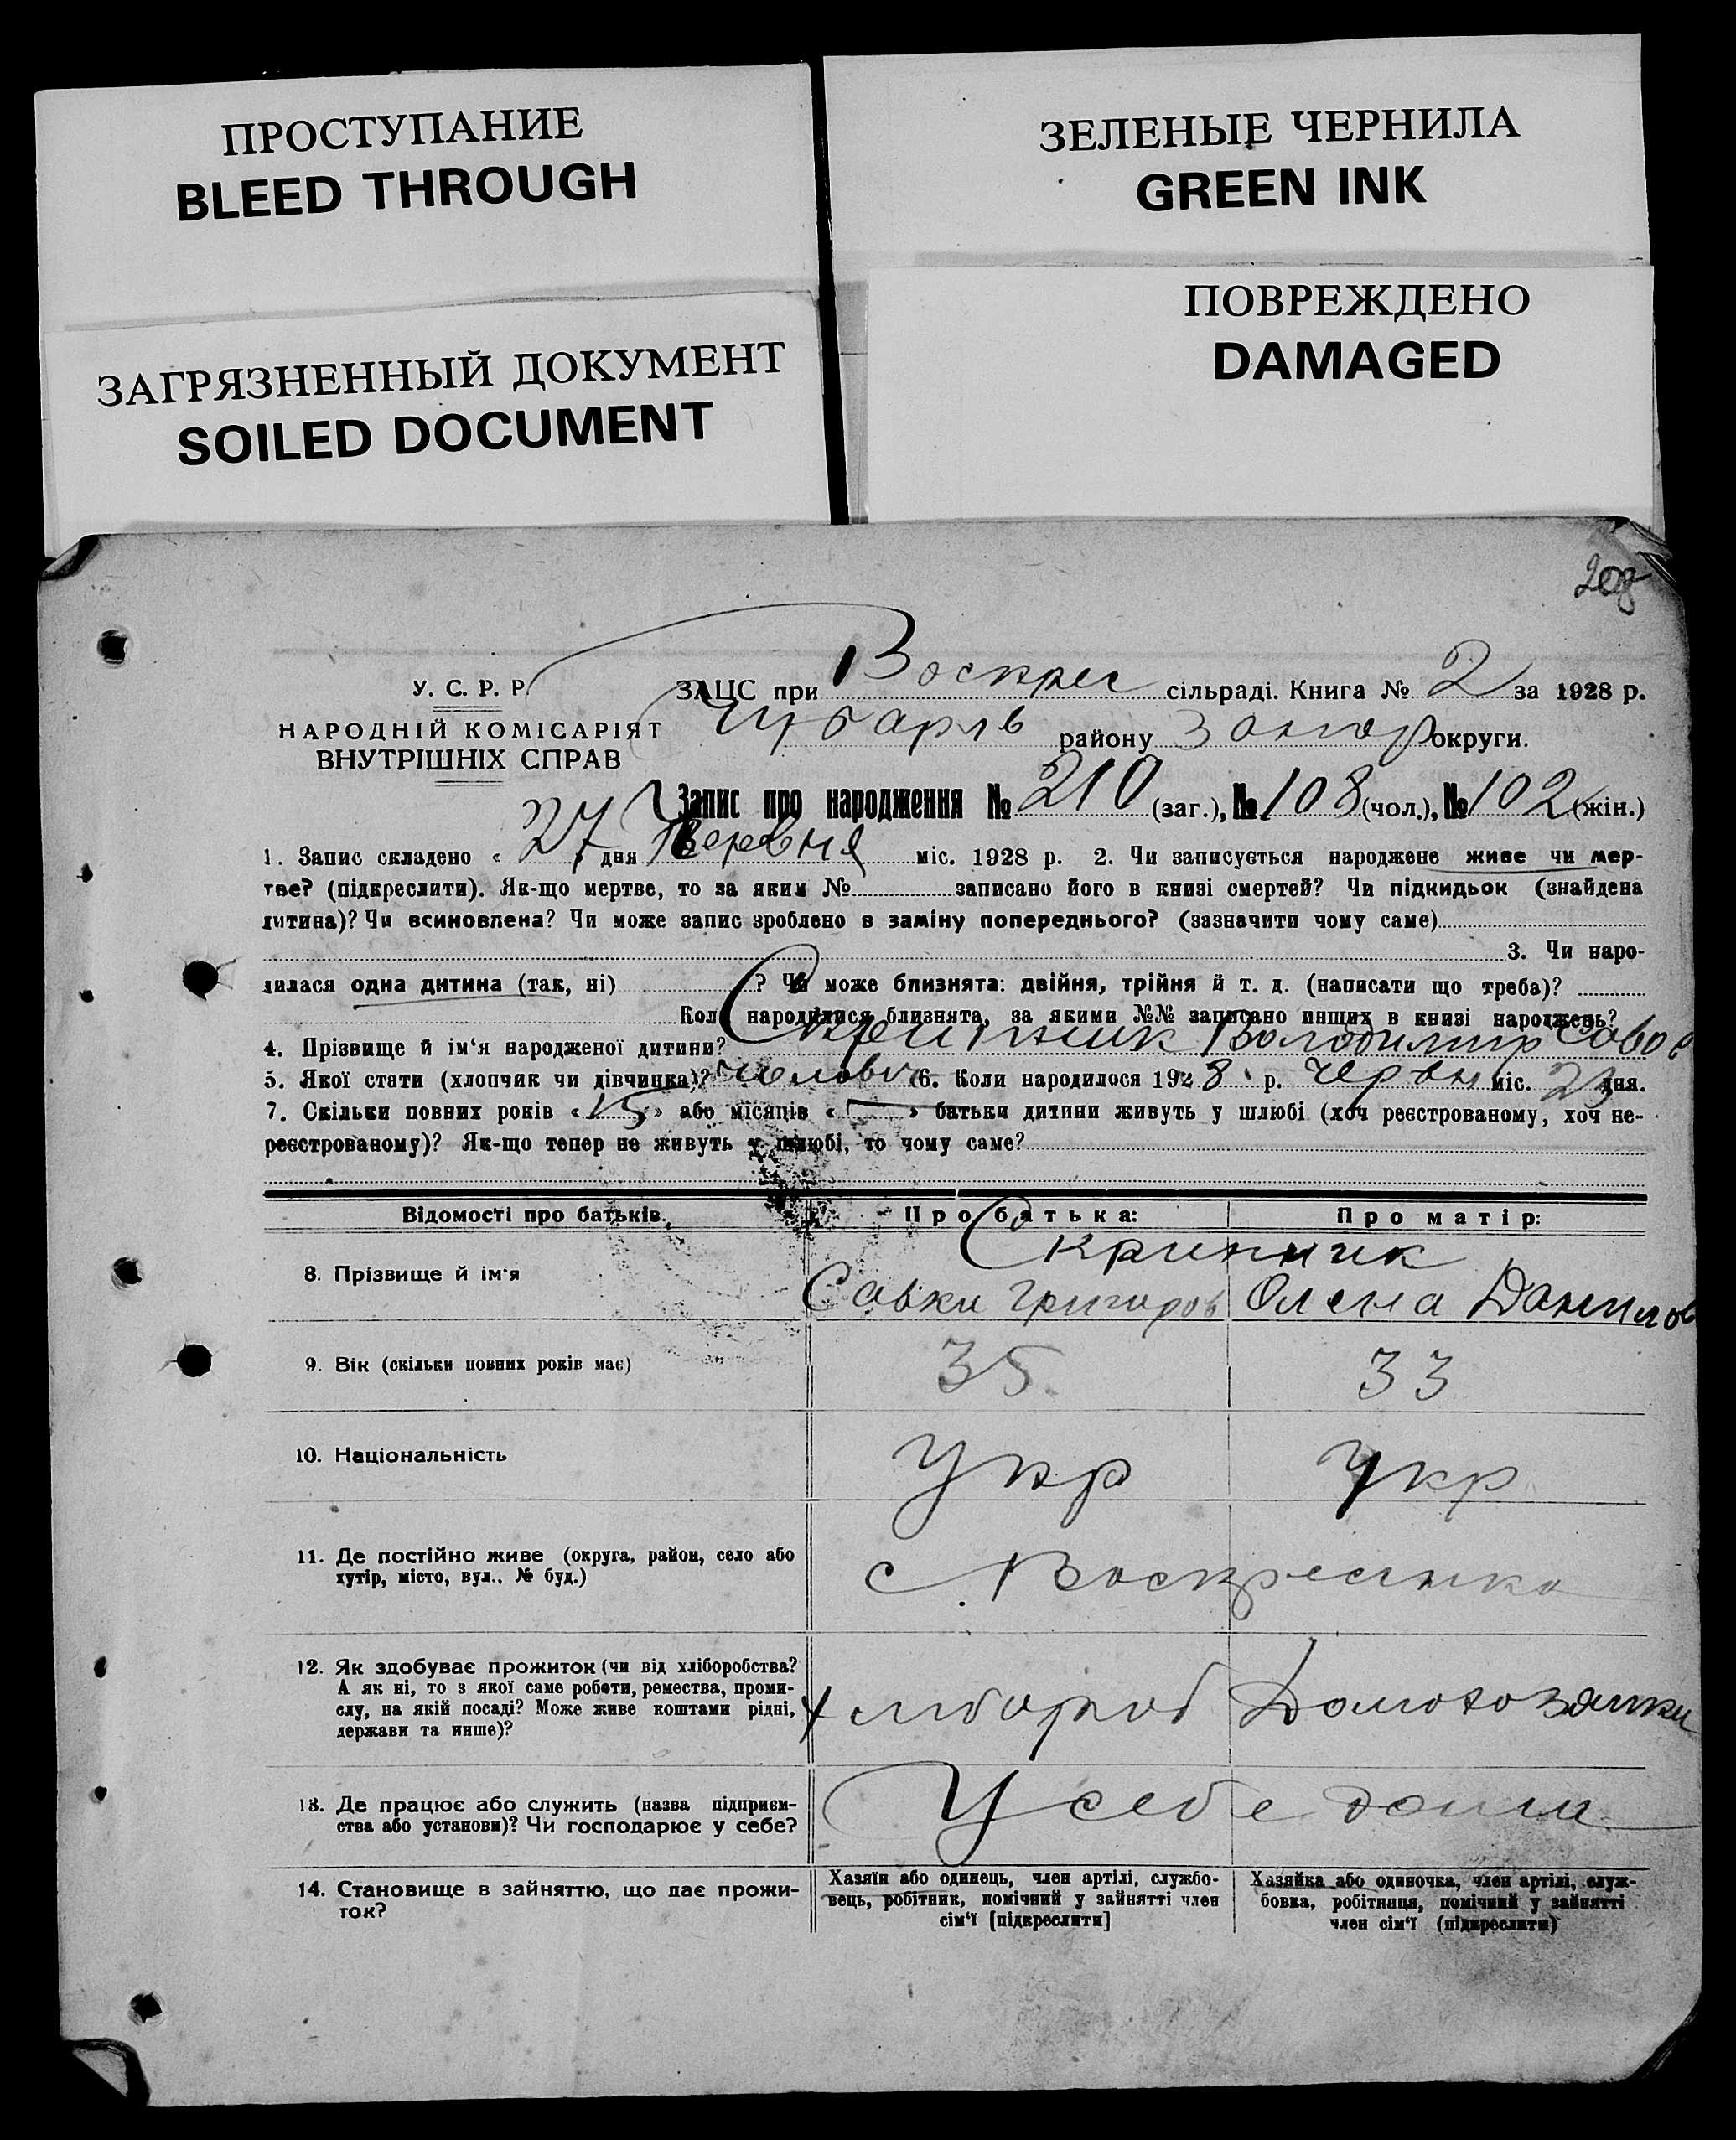 ПРОСТУПАНИЕ
BLEED THROUGH
ЗЕЛЕНЫЕ ЧЕРНИЛА
GREEN INK
ЗАГРЯЗНЕННЫЙ ДОКУМЕНТ
SOILED DOCUMENT
ПОВРЕЖДЕНО
DAMAGED
208
У. С. Р. Р.
НАРОДНІЙ КОМІСАРІЯТ
ВНУТРІШНІХ СПРАВ
ЗАЦС при Воскрес сільраді. Книга № 2 за 1928 р.
Чубарів району Запор округи.
Запис про народження № 210 (заг.), № 108 (чол.), № 102 (жін.)
1. Запис складено « 27 » дня Червня міс. 1928 р. 2. Чи записується народжене живе чи мер-
тве? (підкреслити). Як-що мертве, то за яким № записано його в книзі смертей? Чи підкидьок (знайдена
дитина)? Чи всиновлена? Чи може запис зроблено в заміну попереднього? (зазначити чому саме)
3. Чи наро-
дилася одна дитина (так, ні) ? Чи може близнята: двійня, трійня й т. д. (написати що треба)?
Коли народилися близнята, за якими №№ записано инших в книзі народжень?
4. Прізвище й ім‘я народженої дитини? Скрипник Володимир Савов
5. Якої стати (хлопчик чи дівчинка)? чолов 6. Коли народилося 1928 р. Червн міс. 23 дня.
7. Скільки повних років « 15 » або місяців « — » батьки дитини живуть у шлюбі (хоч реєстрованому, хоч не-
реєстрованому)? Як-що тепер не живуть у шлюбі, то чому саме?
Відомості про батьків. Про батька: Про матір:
Скрипник
8. Прізвище й ім‘я Савки Григоров Олена Данилов
9. Вік (скільки повних років має) 35 33
10. Національність Укр Укр
11. Де постійно живе (округа, район, село або
хутір, місто, вул., № буд.)
с Воскресінка
12. Як здобуває прожиток (чи від хліборобства?
А як ні, то з якої саме роботи, ремества, проми-
слу, на якій посаді? Може живе коштами рідні,
держави та инше)?
хлібороб Домохозяйки
13. Де працює або служить (назва підприєм-
ства або установи)? Чи господарює у себе?
У себе дома
14. Становище в зайняттю, що дає прожи-
ток?
Хазяїн або одинець, член артілі, службо-
вець, робітник, помічний у зайнятті член
сім‘ї [підкреслити]
Хазяйка або одиночка, член артілі, служ-
бовка, робітниця, помічний у зайнятті
член сім‘ї (підкреслити)